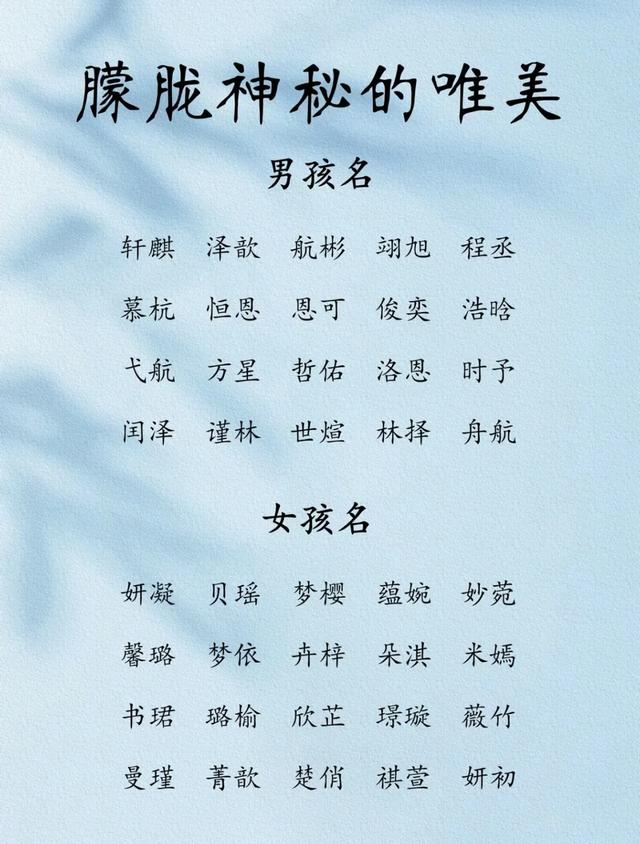 朦胧神秘的唯美
男孩名
轩麒 泽歆 航彬 翊旭 程丞
慕杭 恒恩 恩可 俊奕 浩晗
弋航 方星 哲佑 洛恩 时予
闰泽 谨林 世煊 林择 舟航
女孩名
妍凝 贝瑶 梦樱 蕴婉 妙菀
馨璐 梦依 卉梓 朵淇 米嫣
书珺 璐榆 欣芷 璟璇 薇竹
曼瑾 菁歆 楚俏 祺萱 妍初